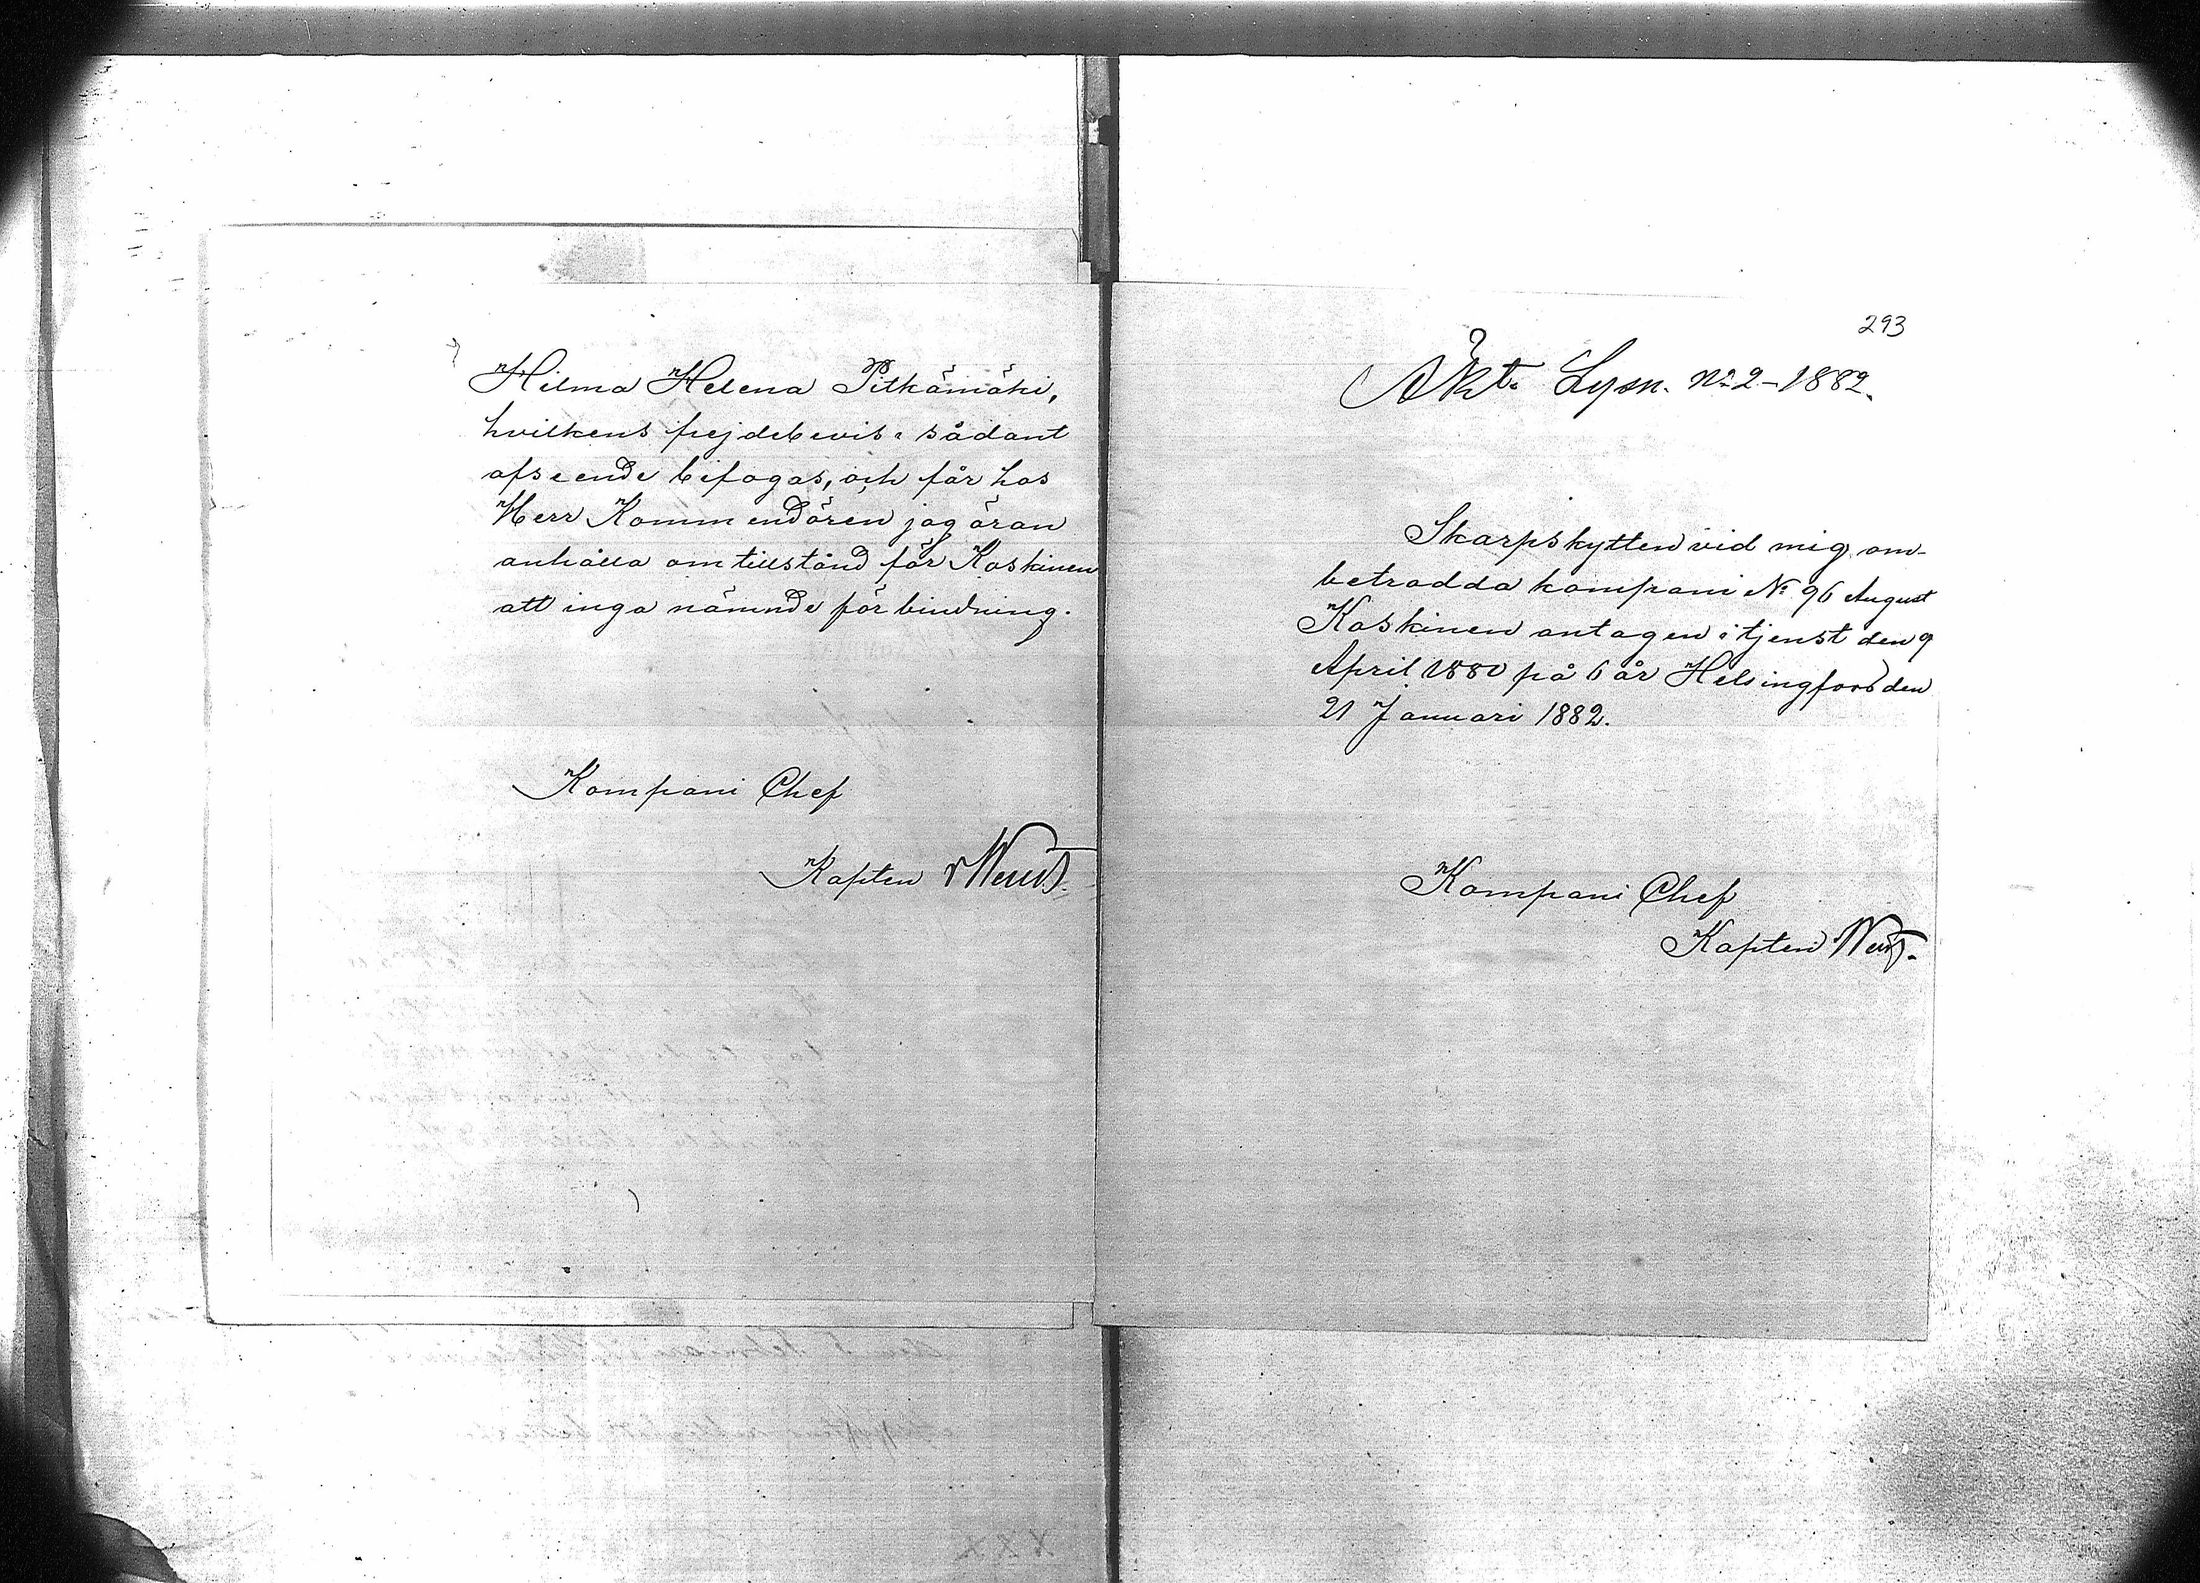 Hilma Helena Pitkämäki,
hvilkens frejdebevis i sådant
afseende bifogas, och får hos
Herr Kommendören jag äran
anhålla om tillstånd för Koskinen
att ingå nämnde förbindning.
Kompani Chef
Kapten
293
Äkt. Lysn. No 2-1882.
Skarpskytten vid mig om-
betrodda kompani No 96 August
Koskinen antagen i tjenst den 9
April 1880 på 6 år Helsingfors den
21 Januari 1882.
Kompani Chef
Kapten